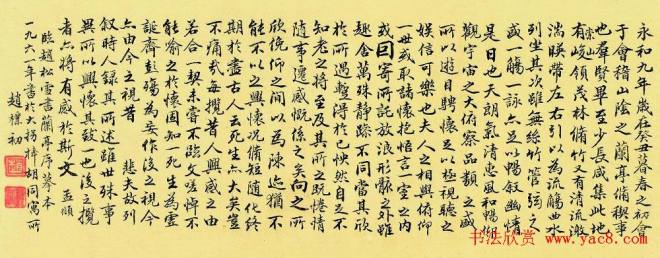 永和九年歲在癸丑暮春之初會
于會稽山陰之蘭亭脩稧事
也群賢畢至少長咸集此地
有崇山峻領茂林脩竹又有清流激
湍暎帶左右引以為流觴曲水
列坐其次雖無絲竹管弦之
盛一觴一詠亦足以暢敘幽情
是日也天朗氣清惠風和暢仰
觀宇宙之大俯察品類之盛
所以遊目騁懷足以極視聽之
娛信可樂也夫人之相與俯仰
一世或取諸懷抱悟言一室之內
或因寄所託放浪形骸之外雖
趣舍萬殊靜躁不同當其欣
於所遇蹔得於己怏然自足不
知老之將至及其所之既惓情
隨事遷感慨係之矣向之所
欣俛仰之間以為陳迹猶不
能不以之興懷況脩短隨化終
期於盡古人云死生亦大矣豈
不痛哉每攬昔人興感之由
若合一契未嘗不臨文嗟悼不
能喻之於懷固知一死生為虛
誕齊彭殤為妄作後之視今
亦由今之視昔 悲夫故列
敘時人錄其所述雖世殊事
異所以興懷其致一也後之攬
者亦將有感於斯文 孟頫
臨趙松雪書蘭亭序摹本
一九六一年書於大拐棒胡同寓所
趙樸初
书法欣赏
www.yac8.com